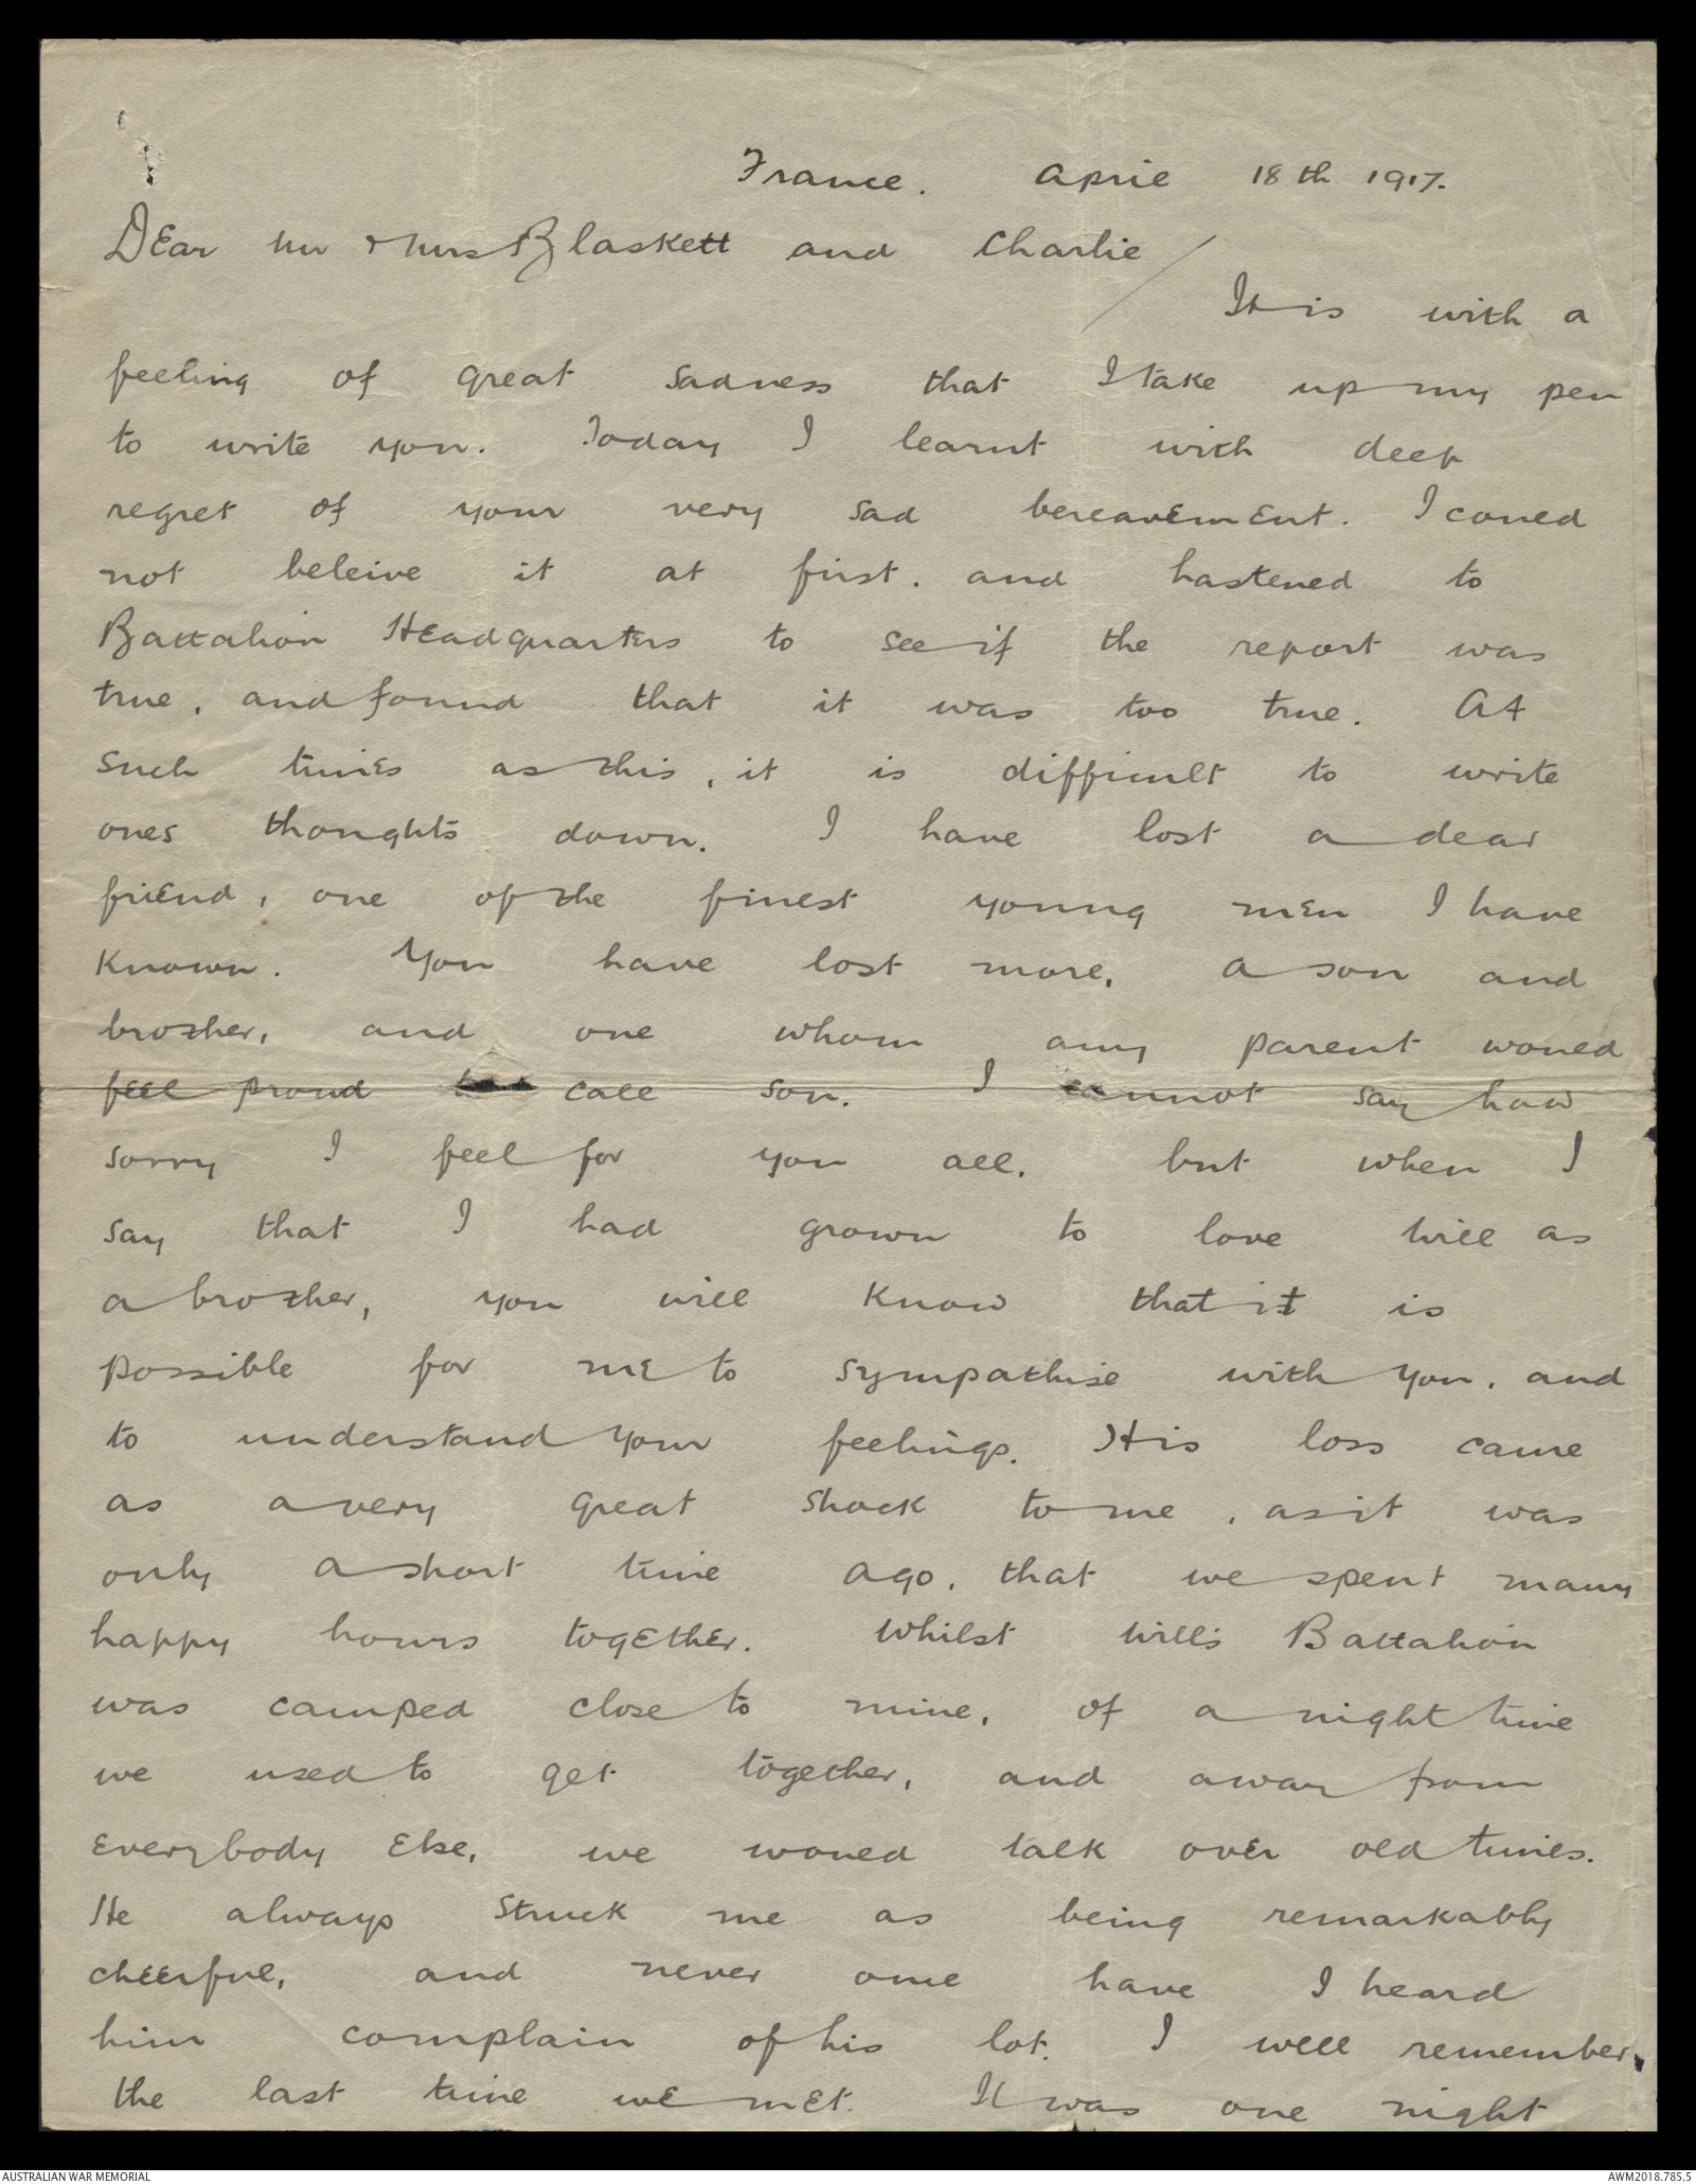 France. April 18th 1917.
Dear Mr & Mrs Blaskett and Charlie/
It is with a
feeling of great sadness that I take up my pen
to write you. Today I learnt with deep
regret of your very sad bereavement. I could
not beleive it at first. and hastened to
Battalion Headquarters to see if the report was
true, and found that it was too true. At
such times as this, it is difficult to write
ones thoughts down. I have lost a dear
friend, one of the finest young men I have
known. You have lost more, a son and
brother, and one whom any parent would
feel proud to call son. I cannot say how
sorry I feel for you all. but when I
say that I had grown to love Will as
a brother, you will know that it is
possible for me to sympathise with you. and
to understand your feelings. His loss came
as a very great shock to me, as it was
only a short time ago, that we spent many
happy hours together. Whilst Will's Battalion
was camped close to mine, of a night time
we used to get together, and away from
everybody else, we would talk over old times.
He always struck me as being remarkably
cheerful, and never once have I heard
him complain of his lot. I well remember,
the last time we met. It was one night
AUSTRALIAN WAR MEMORIAL AWM2018.785.5